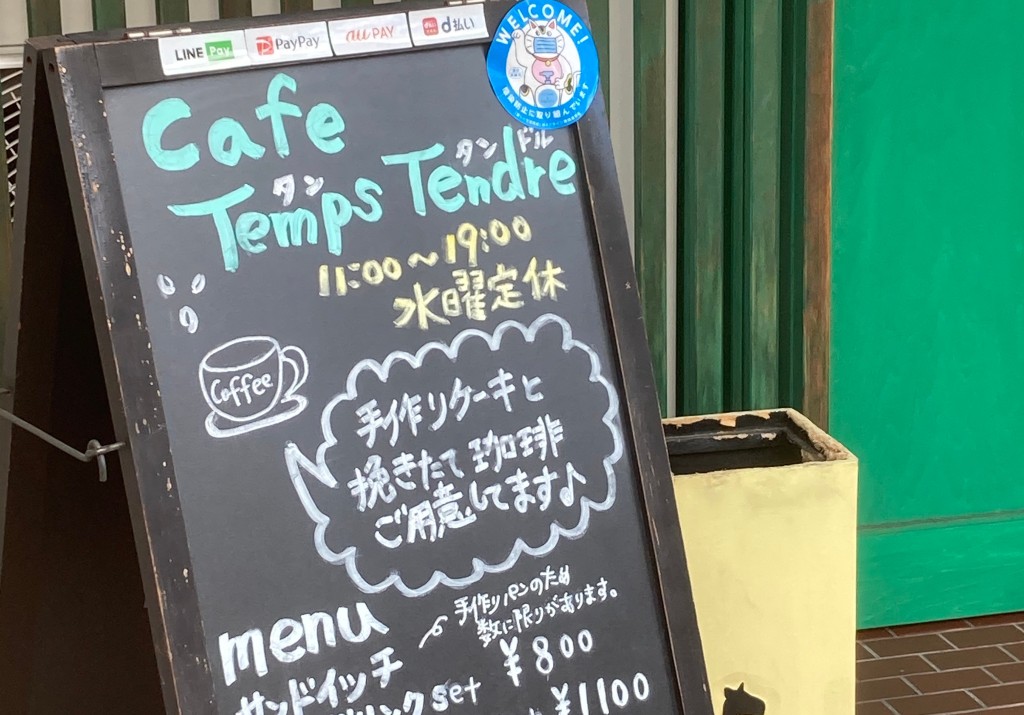 LINE Pay PayPay au PAY d払い
WELCOME!
感染防止に取り組んでいます
Cafe
タン タンドル
Temps Tendre
11:00～19:00
水曜定休
Coffee
手作りケーキと
挽きたて珈琲
ご用意してます♪
menu
手作りパンのため
数に限りがあります。
サンドイッチ ¥800
リンクset ¥1100